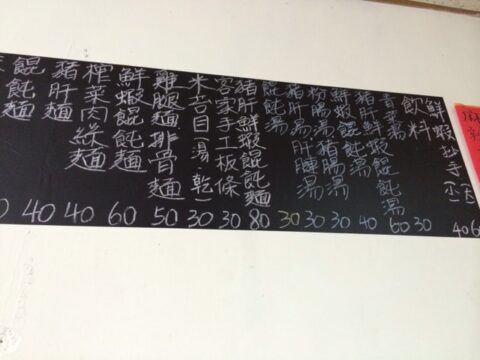 餛飩麵 40
豬肝麵 40
榨菜肉絲麵
鮮蝦餛飩麵 60
雞腿麵排骨麵 50
米苔目湯.乾 30
客家手工板條 30
豬肝鮮蝦餛飩麵 80
餛飩湯 30
豬肝湯肝腱湯 30
粉腸湯豬腸湯 30
鮮蝦餛飩湯 40
豬肝鮮蝦餛飩湯 60
青菜湯 30
飲料
鮮蝦抄手 40